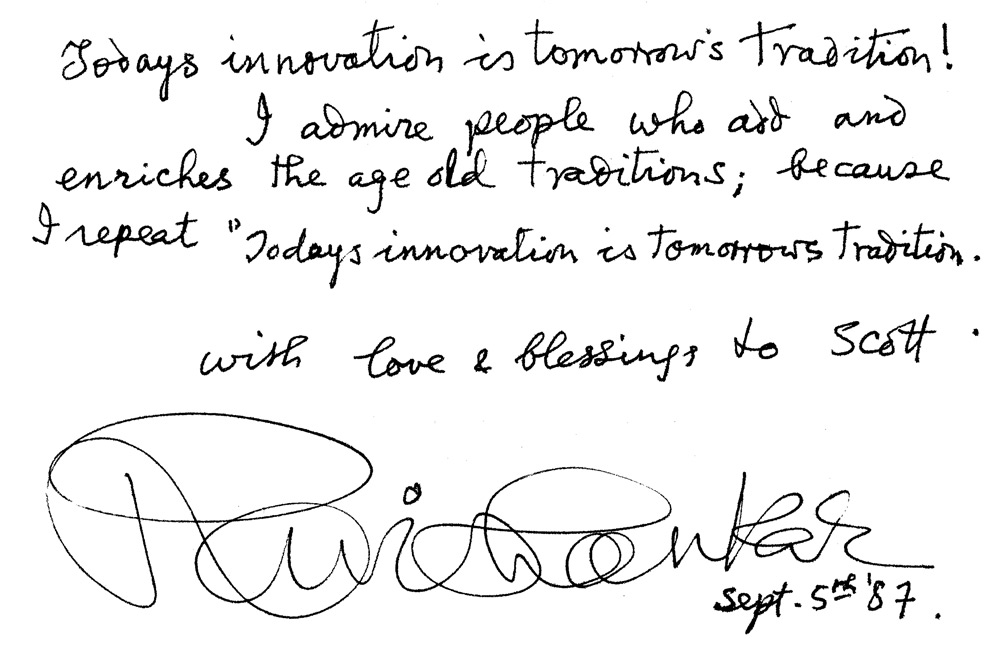 Todays innovation is tomorrow's tradition!
I admire people who add and
enriches the age old traditions; because
I repeat "Todays innovation is tomorrows tradition.
with love & blessings to Scott.
Ravi Shankar
Sept. 5th '87.